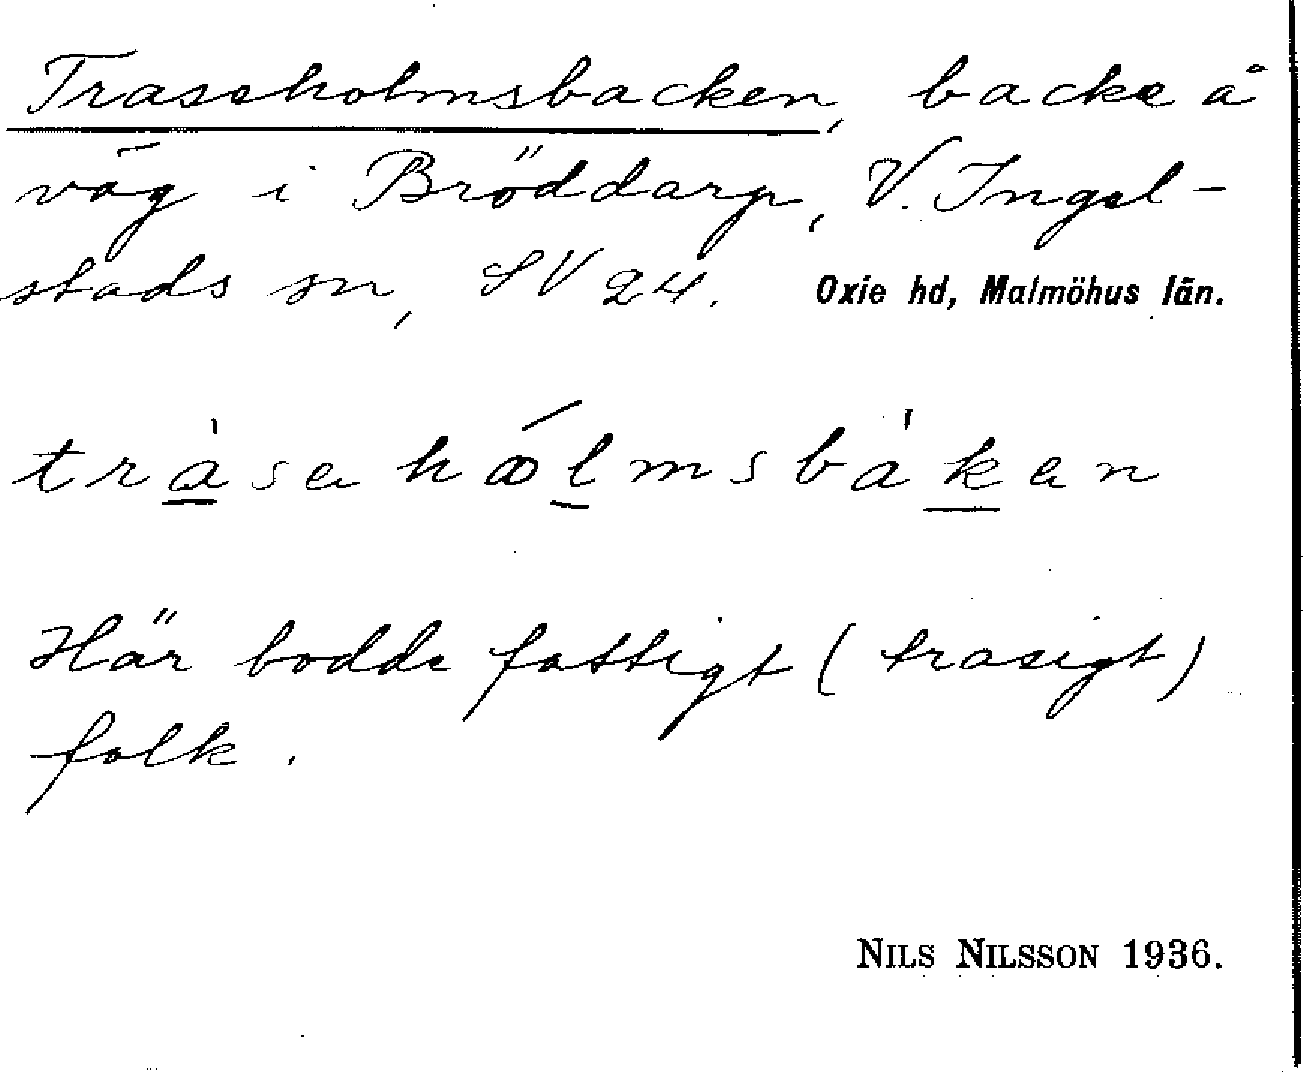 Traseholmsbacken, backe å
väg i Bröddarp, V. Ingel-
stads sn, SV 24. Oxie hd, Malmöhus län.
tràsehólmsbáken
Här bodde fattigt (trasigt)
folk.
NILS NILSSON 1936.